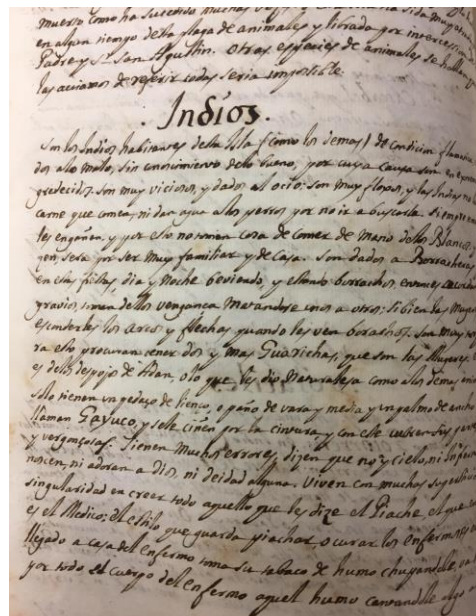 muerto como ha sucedido muchas
en algun tiempo desta plaga de animales y librada por intercession
Padre y Sr. San Agustin. Otras especies de animales se hallan
las acciones de referir todas seria impossible.
. Indios.
Son los Indios habitantes desta Isla (como los demas) de condicion
dos alo malo, sin conocimiento delo bueno, por cuya causa son en
gredecidos, son muy viciosos, y dados al ocio; son muy flojos, y las Indias no
carne que comer, ni dan agua alos perros por no ir a buscarla. siempre
les engañan, y por eso no toman cosa de comer de mano delos Blancos
gen sera por ser muy familiar y de casa. son dados a Borracheras
en estas fiestas dia y noche beviendo, y estando borrachos,
gravios, toman dellos venganza matandose unos a otros; si bien las Mugeres
esconderles los arcos y flechas quando les ven borrachos. son muy
ra esto procuran tener dos y mas Guarichas, que son las Mugeres.
es del despojo de Adan, o lo que les dio Naturaleza como alos demas
solo tienen un pedazo de lienço, o paño de vara y media y un palmo de ancho
llaman Gayuco, y se le ciñen por la cintura, y con este cubren sus partes
y vergonçosas. Tienen muchos errores, dizen que no ay cielo, ni Infierno
nocen, ni adoran a Dios, ni deidad alguna. viven con muchas supersticiones
singularidad en creer todo aquello que les dize el Piache, el que
es el Medico; el estilo que guarda piachar, o curar los enfermos es
llegado a casa del enfermo toma su tabaco de humo chupandole,
por todo el cuerpo del enfermo aquel humo cantandole algo